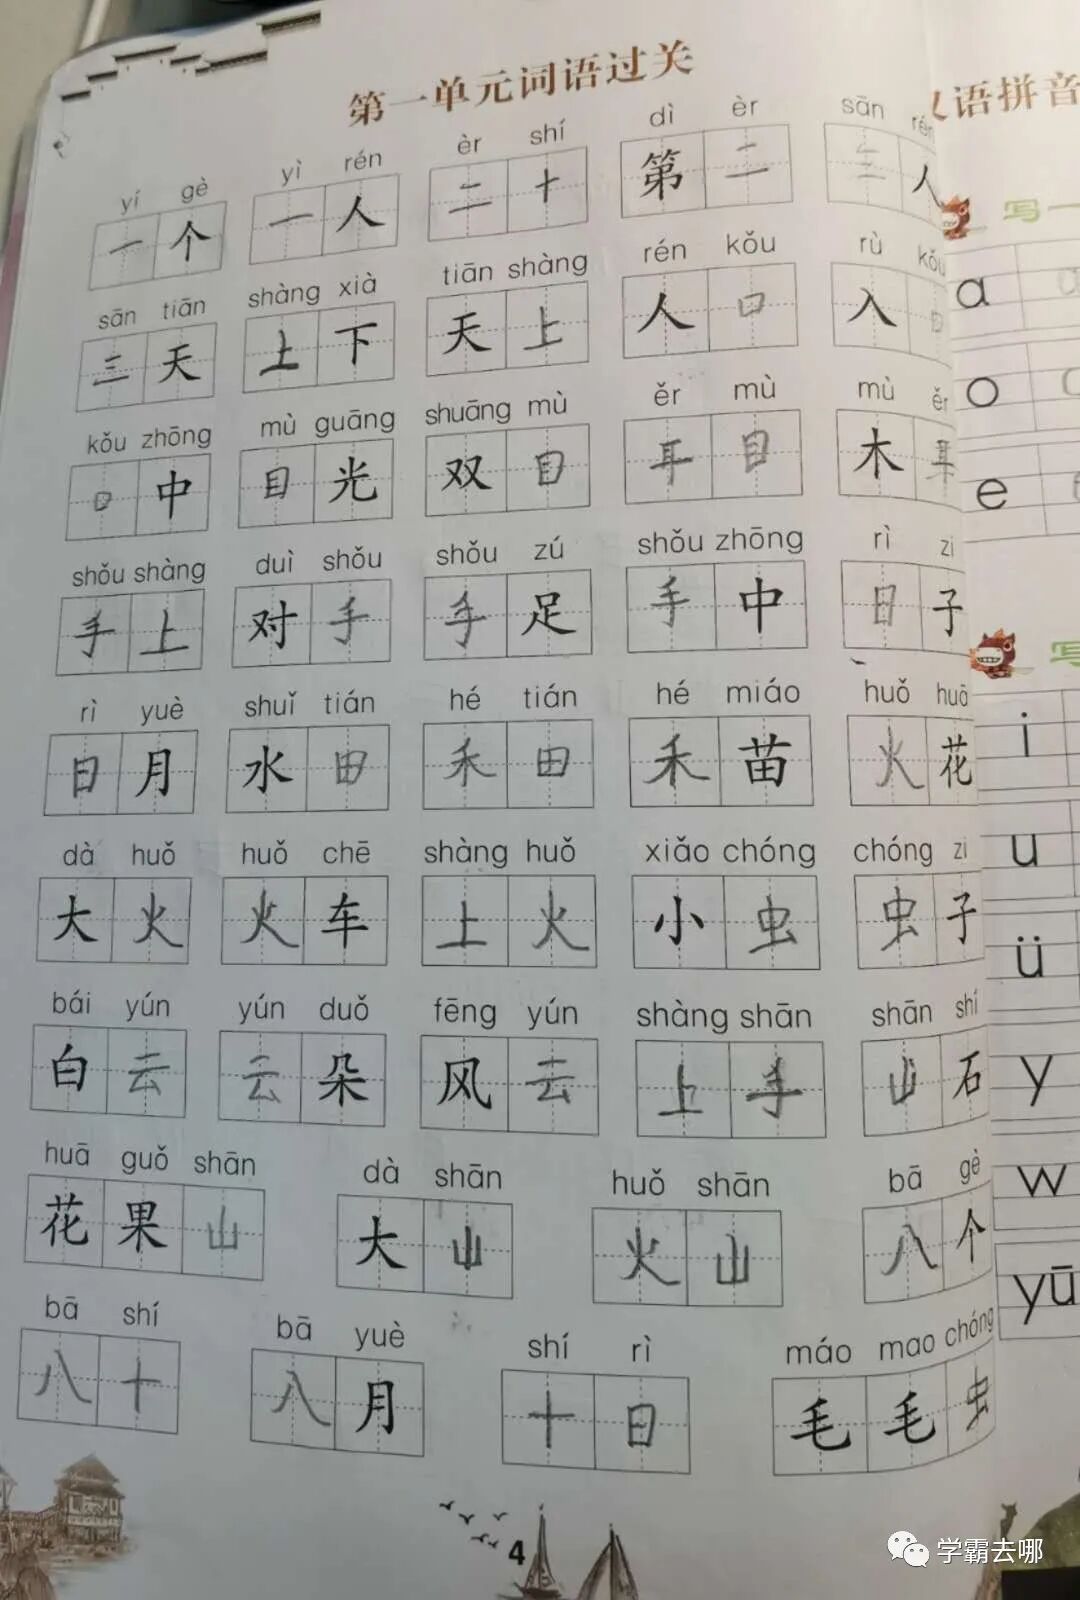 第一单元词语过关
汉语拼音
yí gè yì rén èr shí dì èr sān rén
一个 一人 二十 第二 三人
写一
a
sān tiān shàng xià tiān shàng rén kǒu rù kǒu
三天 上下 天上 人口 入口
o
kǒu zhōng mù guāng shuāng mù ěr mù mù ěr
口中 目光 双目 耳目 木耳
e
shǒu shàng duì shǒu shǒu zú shǒu zhōng rì zi
手上 对手 手足 手中 日子
写
rì yuè shuǐ tián hé tián hé miáo huǒ huā
日月 水田 禾田 禾苗 火花
i
dà huǒ huǒ chē shàng huǒ xiǎo chóng chóng zi
大火 火车 上火 小虫 虫子
u
ü
bái yún yún duǒ fēng yún shàng shān shān shí
白云 云朵 风云 上手 山石
y
huā guǒ shān dà shān huǒ shān bā gè
花果山 大山 火山 八个
w
bā shí bā yuè shí rì máo mao chóng
八十 八月 十日 毛毛虫
yū
4
学霸去哪